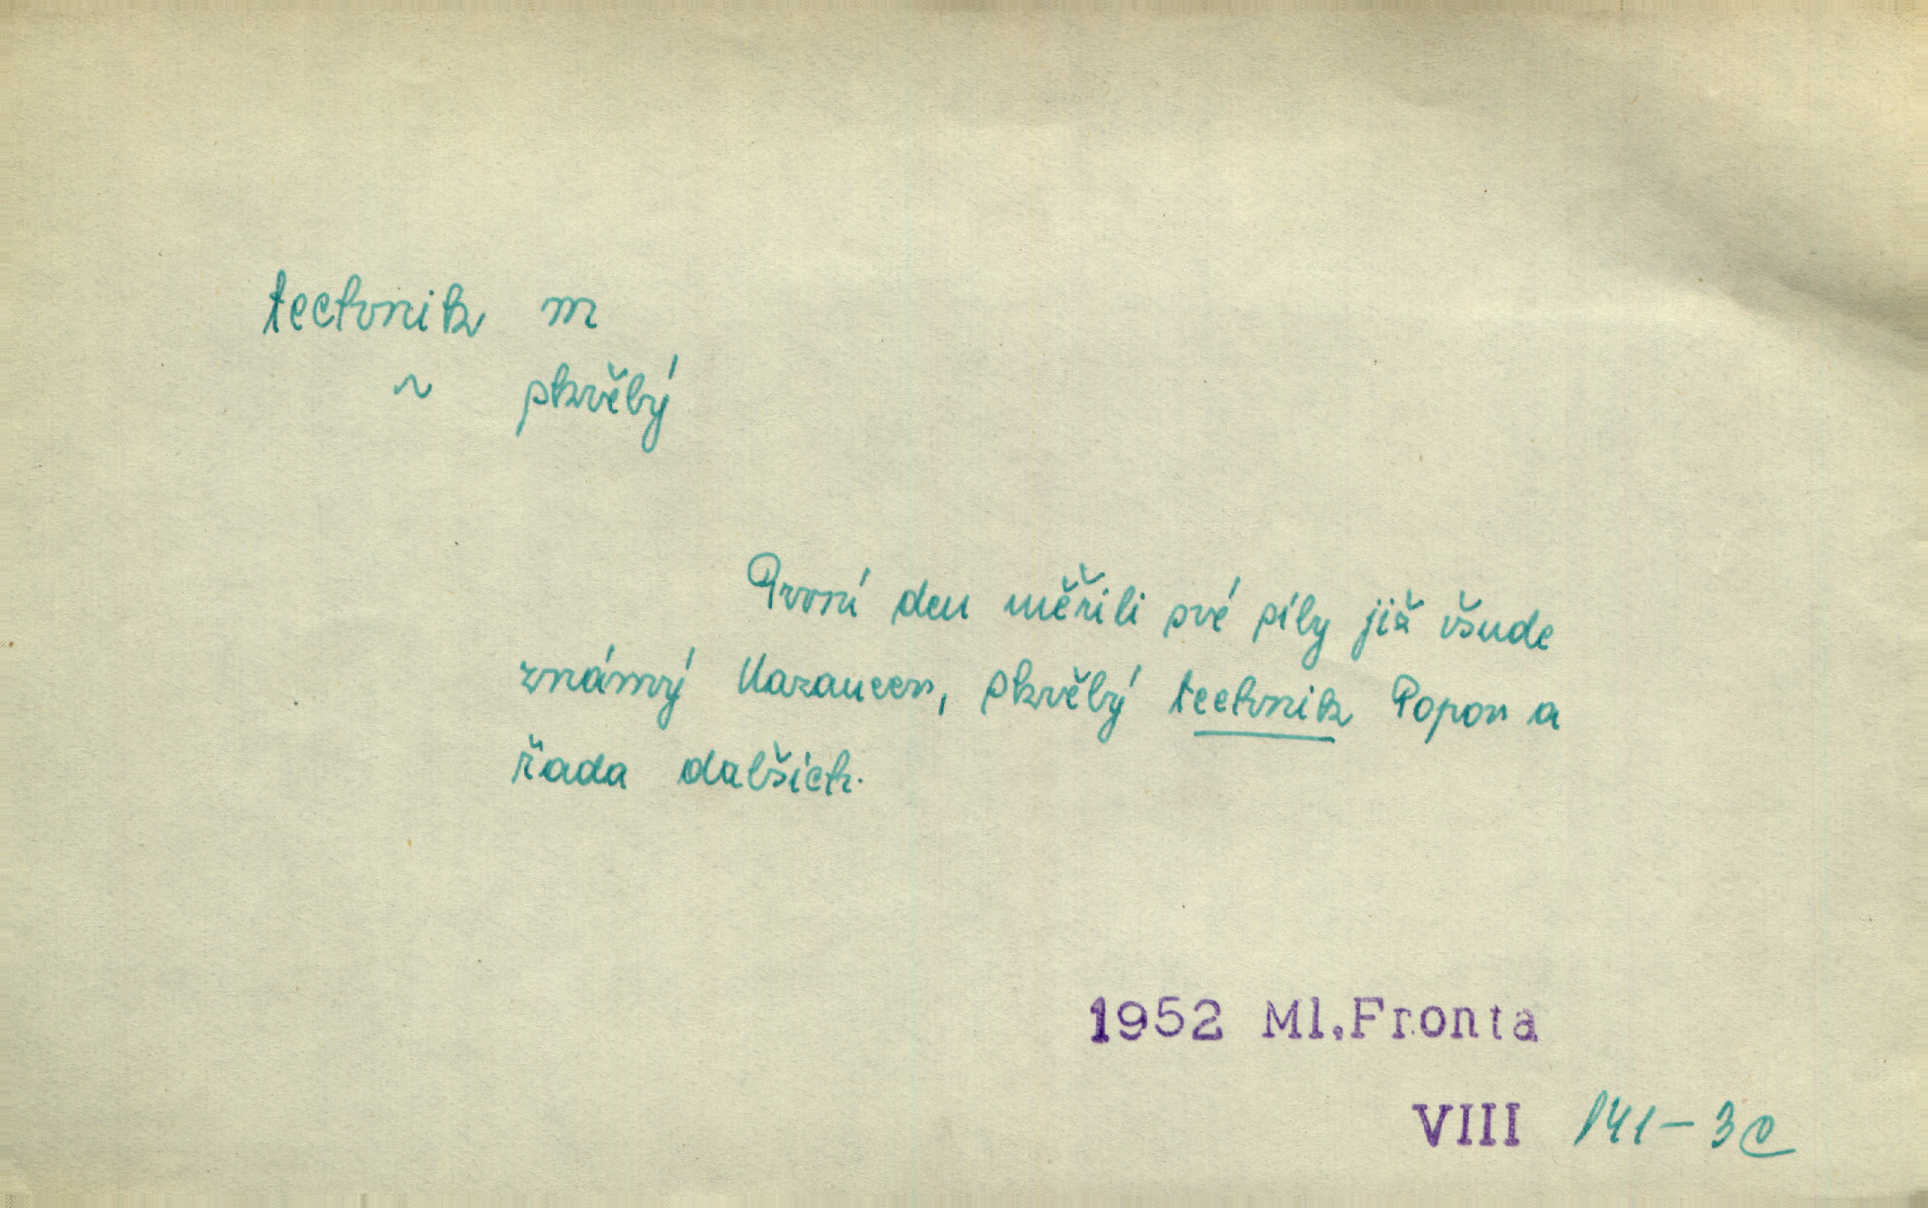 technik m
~ skvělý
První den měřili své síly již všude
známý Kazancev, skvělý technik Popov a
řada dalších.
1952 Ml.Fronta
VIII 141-3c